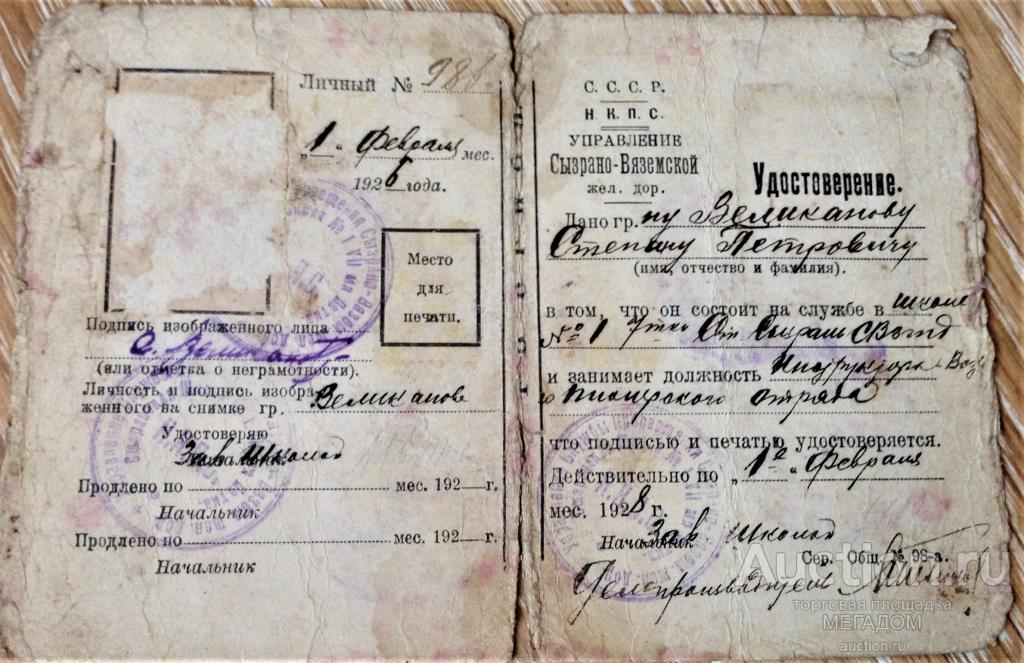 Личный № 981
„1“ Февраля мес.
1926 года.
Место
для
печати.
Подпись изображенного лица
С. Великанов
(или отметка о неграмотности).
Личность и подпись изобра-
женного на снимке гр. Великанова
Удостоверяю
Зав. Школой
Начальник
Продлено по мес. 192 г.
Начальник
Продлено по мес. 192 г.
Начальник
С. С. С. Р.
Н. К. П. С.
УПРАВЛЕНИЕ
Сызрано-Вяземской
жел. дор.
Удостоверение.
Дано гр. ну Великанову
Степану Петровичу
(имя, отчество и фамилия).
в том, что он состоит на службе в школе
№ 1
и занимает должность Инструктора
Пионерского отряда
что подписью и печатью удостоверяется.
Действительно по „1“ Февраля
мес. 1928 г.
Зав. школой
Начальник
Сер. Общ. № 98-а.
Делопроизводитель
Auction.ru
торговая площадка
МЕГАДОМ
auction.ru